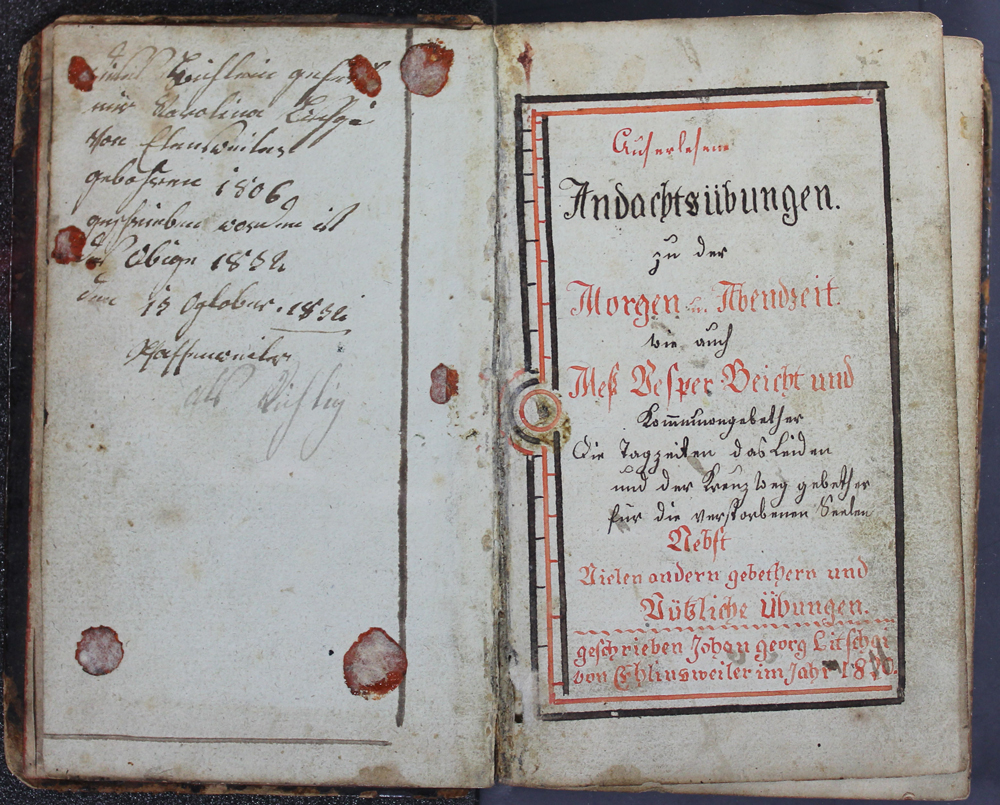 Büchlein gehört
mir Karolina
von Elensweiler
gebohren 1806
geschrieben worden ist
das Obige 1832
den 13 October. 1832
Pfaffenweiler
als Richtig
Auserlesene
Andachtsübungen.
zu der
Morgen u. Abendzeit.
wie auch
Meß Vesper Beicht und
Kom̅unongebether
Die Tagzeiten das Leiden
und der Kreuzweg gebether
für die verstorbenen Seelen
Nebst
Vielen andern gebethern und
Nützliche Übungen.
geschrieben Johan georg Litschgi
von Ehlinsweiler im Jahr